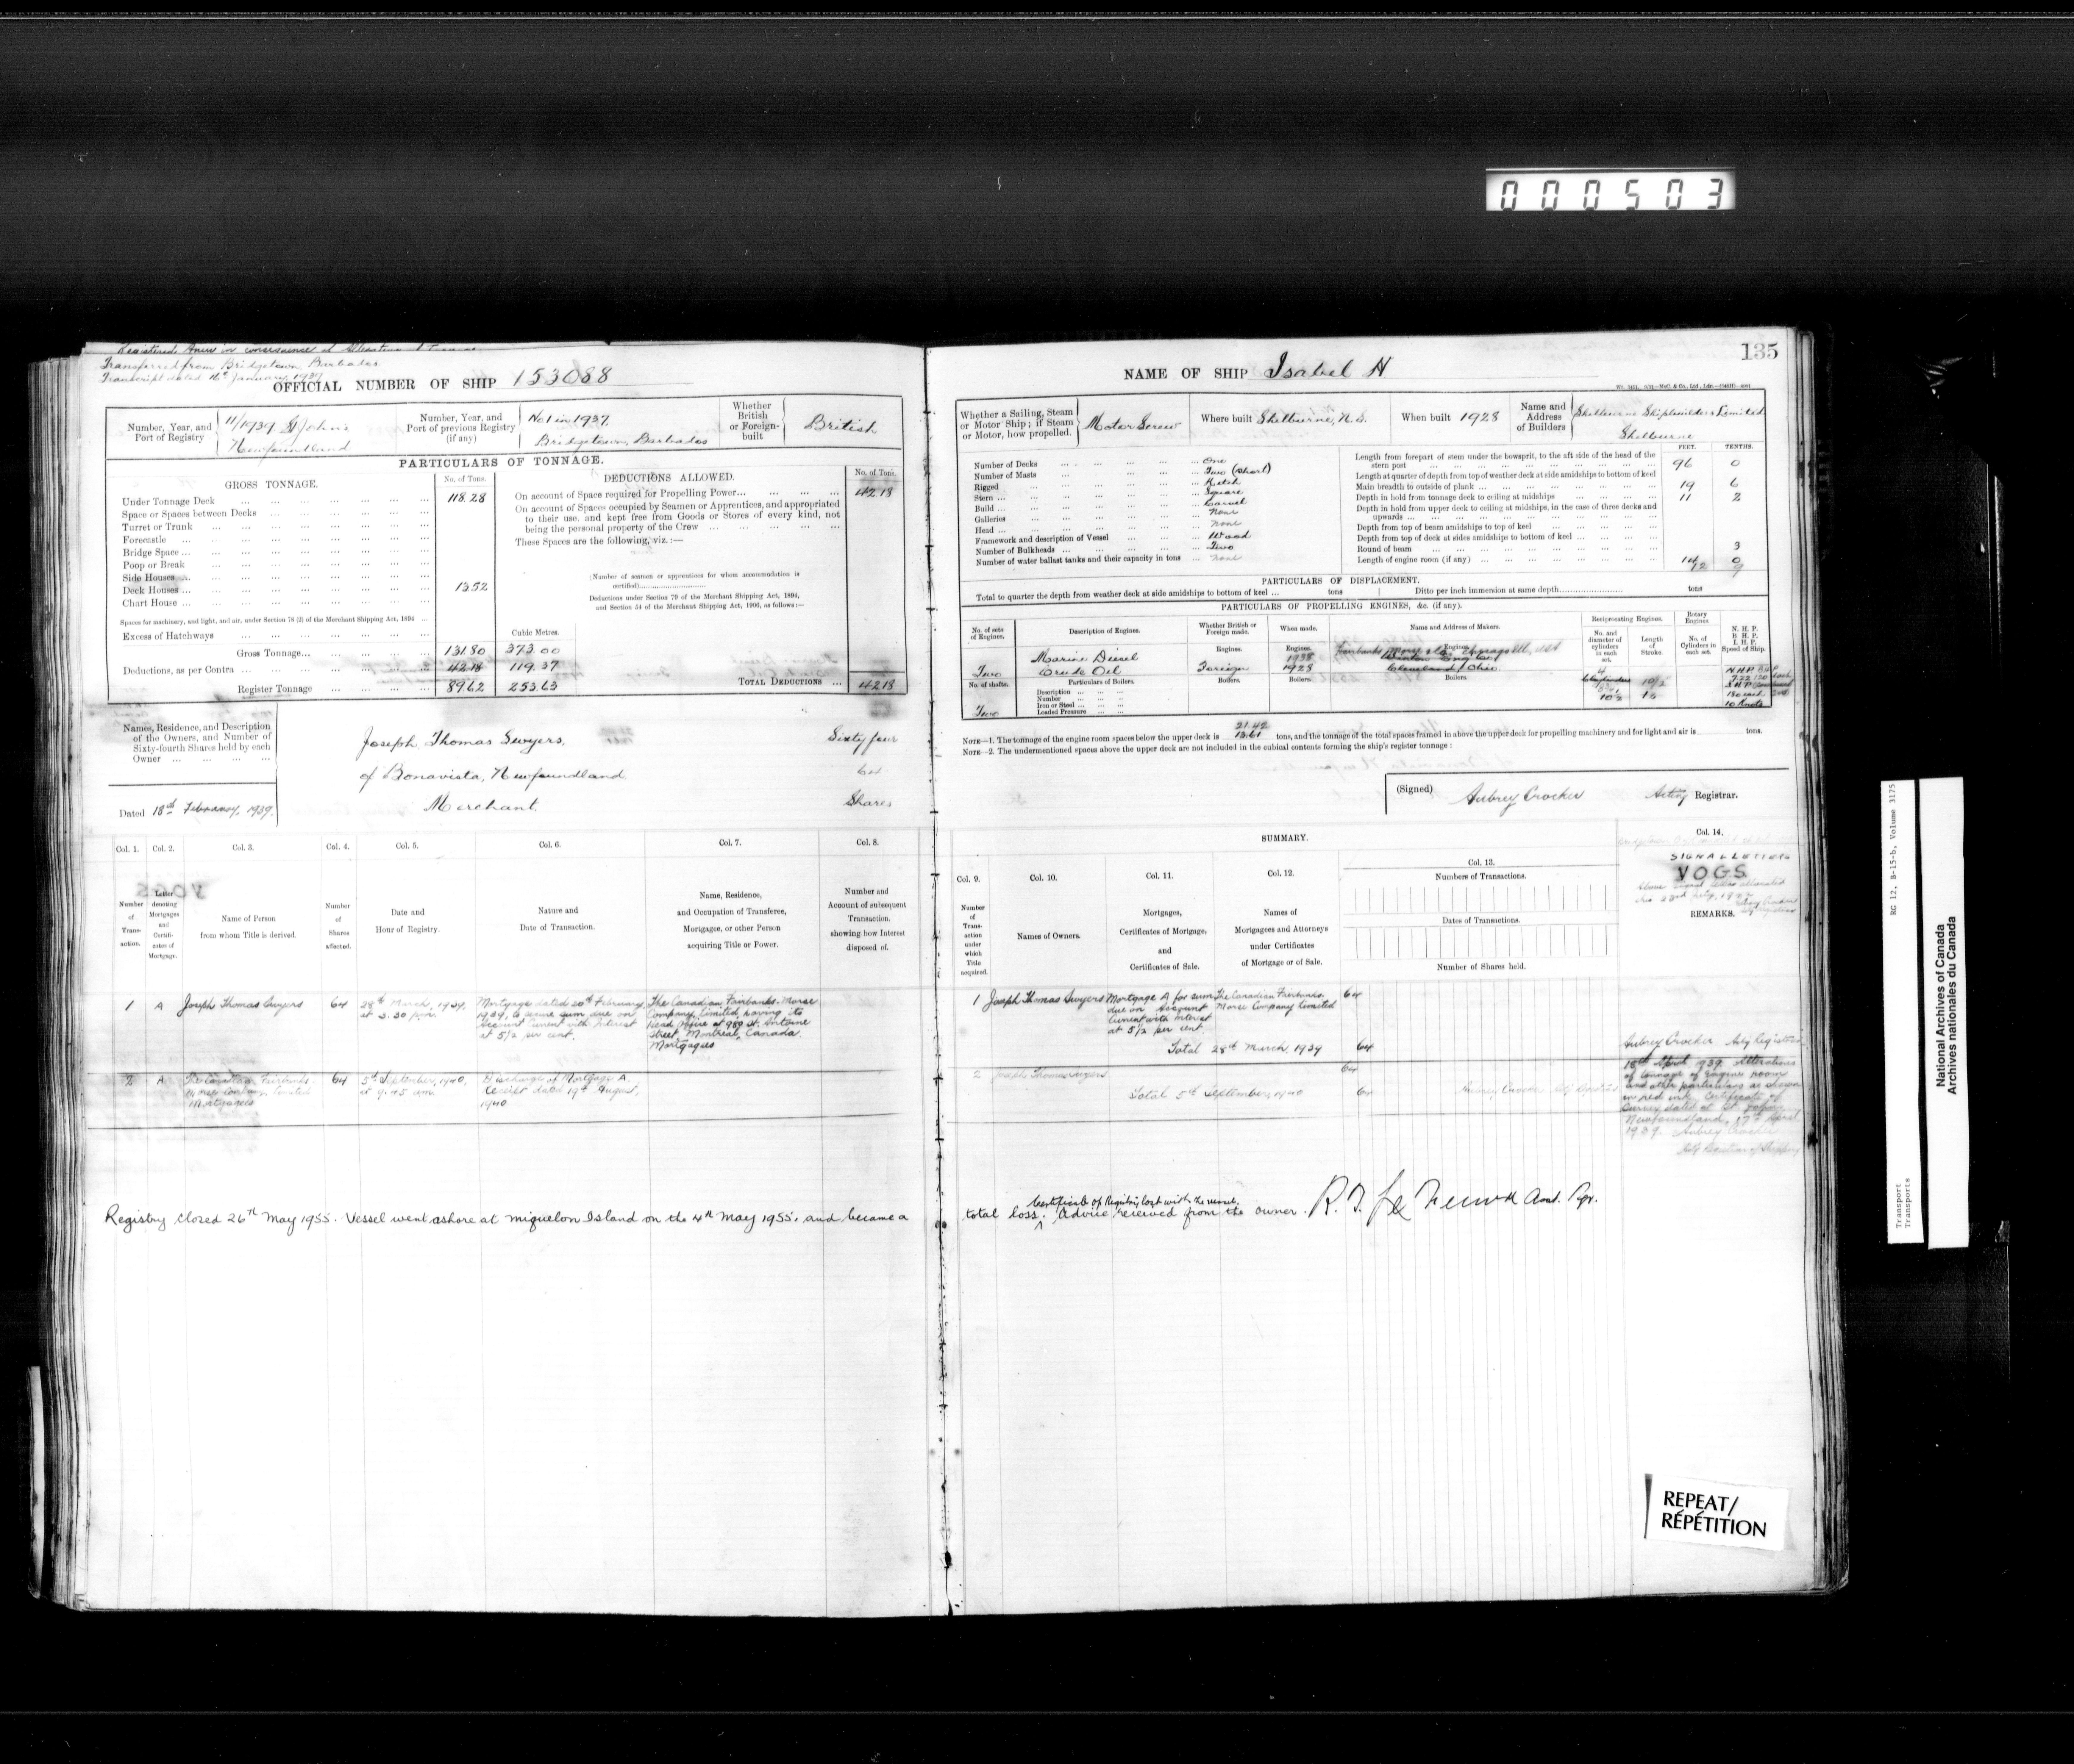 000503
135
Transferred from Bridgetown, Barbados
Transcript dated 16th January, 1939
OFFICIAL NUMBER OF SHIP 153088
NAME OF SHIP Isabel H
Number, Year, and Port of Registry
11/1939 St John's
Newfoundland
Number, Year, and Port of previous Registry (if any)
No 1 in 1937.
Bridgetown, Barbados
Whether British or Foreign-built
British
PARTICULARS OF TONNAGE.
GROSS TONNAGE.
No. of Tons.
Under Tonnage Deck 118.28
Space or Spaces between Decks
Turret or Trunk
Forecastle
Bridge Space
Poop or Break
Side Houses
Deck Houses 13.52
Chart House
Spaces for machinery, and light, and air, under Section 78 (2) of the Merchant Shipping Act, 1894
Excess of Hatchways
Cubic Metres.
Gross Tonnage 131.80 373.00
Deductions, as per Contra 42.18 119.37
Register Tonnage 89.62 253.63
DEDUCTIONS ALLOWED.
No. of Tons.
On account of Space required for Propelling Power 42.18
On account of Spaces occupied by Seamen or Apprentices, and appropriated
to their use, and kept free from Goods or Stores of every kind, not
being the personal property of the Crew
These Spaces are the following, viz.:—
(Number of seamen or apprentices for whom accommodation is
certified)
Deductions under Section 79 of the Merchant Shipping Act, 1894,
and Section 54 of the Merchant Shipping Act, 1906, as follows:—
TOTAL DEDUCTIONS 42.18
Names, Residence, and Description
of the Owners, and Number of
Sixty-fourth Shares held by each
Owner
Joseph Thomas Swyers,
of Bonavista, Newfoundland
Merchant.
Sixty four
64
Shares
Dated 18th February, 1939.
Whether a Sailing, Steam or Motor Ship; if Steam or Motor, how propelled.
Motor Screw
Where built Shelburne, N.S.
When built 1928
Name and Address of Builders
Shelburne Shipbuilders Limited
Shelburne
Number of Decks One
Number of Masts Two (short)
Rigged Ketch
Stern Square
Build Carvel
Galleries None
Head None
Framework and description of Vessel Wood
Number of Bulkheads Two
Number of water ballast tanks and their capacity in tons none
FEET. TENTHS.
Length from forepart of stem under the bowsprit, to the aft side of the head of the
stern post 96 0
Length at quarter of depth from top of weather deck at side amidships to bottom of keel
Main breadth to outside of plank 19 6
Depth in hold from tonnage deck to ceiling at midships 11 2
Depth in hold from upper deck to ceiling at midships, in the case of three decks and
upwards
Depth from top of beam amidships to top of keel
Depth from top of deck at sides amidships to bottom of keel
Round of beam 3
Length of engine room (if any) 14 0
12 9
PARTICULARS OF DISPLACEMENT.
Total to quarter the depth from weather deck at side amidships to bottom of keel tons
Ditto per inch immersion at same depth tons
PARTICULARS OF PROPELLING ENGINES, &c. (if any).
No. of sets of Engines.
Description of Engines.
Whether British or Foreign made.
When made.
Name and Address of Makers.
Reciprocating Engines.
No. and diameter of cylinders in each set.
Length of Stroke.
Rotary Engines.
No. of Cylinders in each set.
N. H. P.
B. H. P.
I. H. P.
Speed of Ship.
Two
Marine Diesel
Crude Oil
Engines.
Foreign
Engines.
1938
1928
Engines.
Fairbanks Morse & Co. Chicago Ill. USA
Cleveland, Ohio.
10½
10 Knots
No. of shafts.
Two
Particulars of Boilers.
Description
Number
Iron or Steel
Loaded Pressure
Boilers.
Boilers.
Boilers.
21.42
13.61
NOTE—1. The tonnage of the engine room spaces below the upper deck is tons, and the tonnage of the total spaces framed in above the upper deck for propelling machinery and for light and air is tons.
NOTE—2. The undermentioned spaces above the upper deck are not included in the cubical contents forming the ship's register tonnage:
(Signed) Aubrey Crocker Acting Registrar.
Col. 1. Col. 2. Col. 3. Col. 4. Col. 5. Col. 6. Col. 7. Col. 8.
Number of Transaction.
Letter denoting Mortgages and Certificates of Mortgage.
Name of Person from whom Title is derived.
Number of Shares affected.
Date and Hour of Registry.
Nature and Date of Transaction.
Name, Residence, and Occupation of Transferee, Mortgagee, or other Person acquiring Title or Power.
Number and Account of subsequent Transaction, showing how Interest disposed of.
SUMMARY.
Col. 9. Col. 10. Col. 11. Col. 12. Col. 13. Col. 14.
Number of Transaction under which Title acquired.
Names of Owners.
Mortgages, Certificates of Mortgage, and Certificates of Sale.
Names of Mortgagees and Attorneys under Certificates of Mortgage or of Sale.
Numbers of Transactions.
Dates of Transactions.
Number of Shares held.
SIGNAL LETTERS
VOGS
REMARKS.
1 A Joseph Thomas Swyers 64
28th March, 1939, at 3.30 p.m.
Mortgage dated 20th February
1939, to secure sum due on
Account Current with Interest
at 5½ per cent.
The Canadian Fairbanks-Morse
Company, Limited, having its
Head Office at 980 St. Antoine
Street, Montreal, Canada.
Mortgagees
1 Joseph Thomas Swyers
Mortgage A for sum
due on Account
Current with Interest
at 5½ per cent.
The Canadian Fairbanks-
Morse Company Limited
64
Total 28th March, 1939 64
Aubrey Crocker Actg Registrar
2 A The Canadian Fairbanks-
Morse Company Limited
Mortgagees
64
5th September, 1940,
at 9.45 am.
Discharge of Mortgage A.
Receipt dated 19th August,
1940
2 Joseph Thomas Swyers 64
Total 5th September, 1940 64
Aubrey Crocker Actg Registrar
18th April 1939. Alterations
of tonnage of engine room
and other particulars as shown
in red ink. Certificate of
Survey dated at St. John's
Newfoundland, 17th April
1939. Aubrey Crocker
Actg Registrar of Shipping
Registry closed 26th May 1955. Vessel went ashore at Miquelon Island on the 4th May 1955, and became a
total loss. Certificate of Registry lost with the vessel. Advice received from the owner.
REPEAT/
RÉPÉTITION
RG 12, B-15-b, Volume 3175
Transport
Transports
National Archives of Canada
Archives nationales du Canada